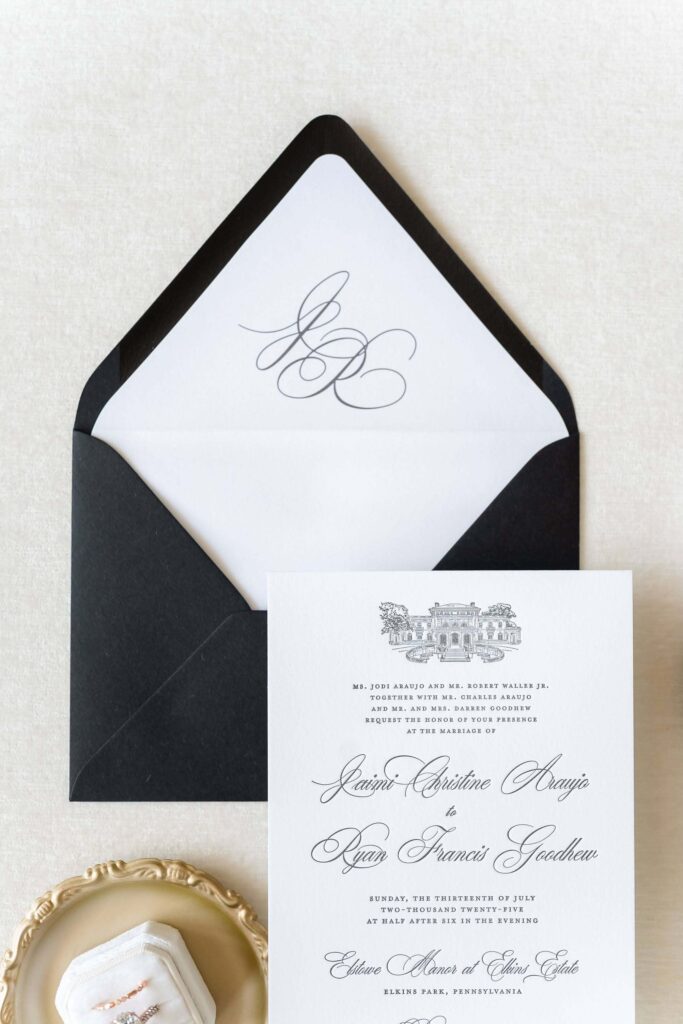 JR
MS. JODI ARAUJO AND MR. ROBERT WALLER JR.
TOGETHER WITH MR. CHARLES ARAUJO
AND MR. AND MRS. DARREN GOODHEW
REQUEST THE HONOR OF YOUR PRESENCE
AT THE MARRIAGE OF
Jaimi Christine Araujo
to
Ryan Francis Goodhew
SUNDAY, THE THIRTEENTH OF JULY
TWO-THOUSAND TWENTY-FIVE
AT HALF AFTER SIX IN THE EVENING
Elstowe Manor at Elkins Estate
ELKINS PARK, PENNSYLVANIA